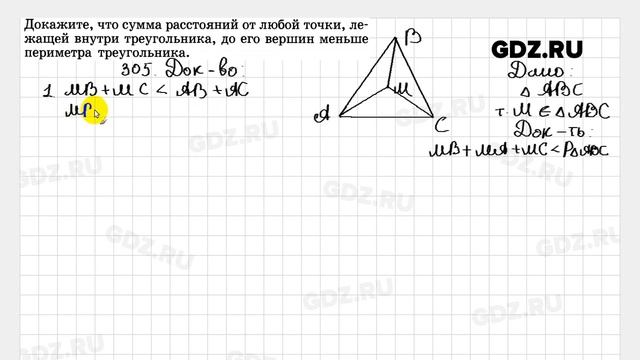 Докажите, что сумма расстояний от любой точки, ле-
жащей внутри треугольника, до его вершин меньше
периметра треугольника.
305. Док-во:
1. MB + MC < AB + AC
MB
B
M
A
C
GDZ.RU
Дано:
△ ABC
т. M ∈ △ ABC
Док-ть:
MB + MA + MC < P△ABC
GDZ.RU
GDZ.RU
GDZ.RU
GDZ.RU
GDZ.RU
GDZ.RU
GDZ.RU